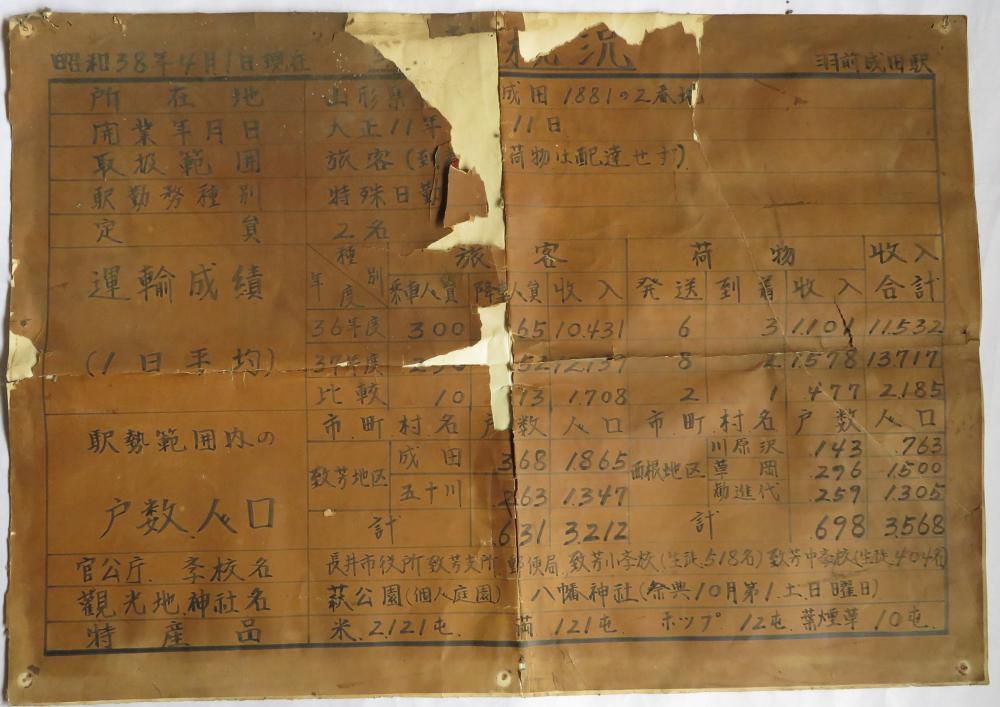 昭和38年4月1日現在 概況 羽前成田駅
所在地 山形県 成田1881の2番地
開業年月日 大正11年 11日
取扱範囲 旅客 荷物は配達せず)
駅勤務種別 特殊日勤
定員 2名
運輸成績 (1日平均)
種別 年度 旅客 荷物 収入合計
乗車人員 降車人員 収入 発送 到着 収入
36年度 300 65 10.431 6 3 1.101 11.532
37年度 52 12.139 8 2 1.578 13.717
比較 10 13 1.708 2 1 477 2.185
駅勢範囲内の 戸数人口
市町村名 戸数 人口 市町村名 戸数 人口
致芳地区 成田 368 1.865 西根地区 川原沢 143 .763
草岡 296 1.500
五十川 263 1.347 勧進代 .259 1.305
計 .631 3.212 計 .698 3.568
官公庁.学校名 長井市役所致芳支所.郵便局.致芳小学校(生徒.518名)致芳中学校(生徒404名)
観光地神社名 萩公園(個人庭園) 八幡神社(祭典10月第1.土日曜日)
特産品 米.2.121屯. 121屯. ホップ 12屯.葉煙草 10屯.